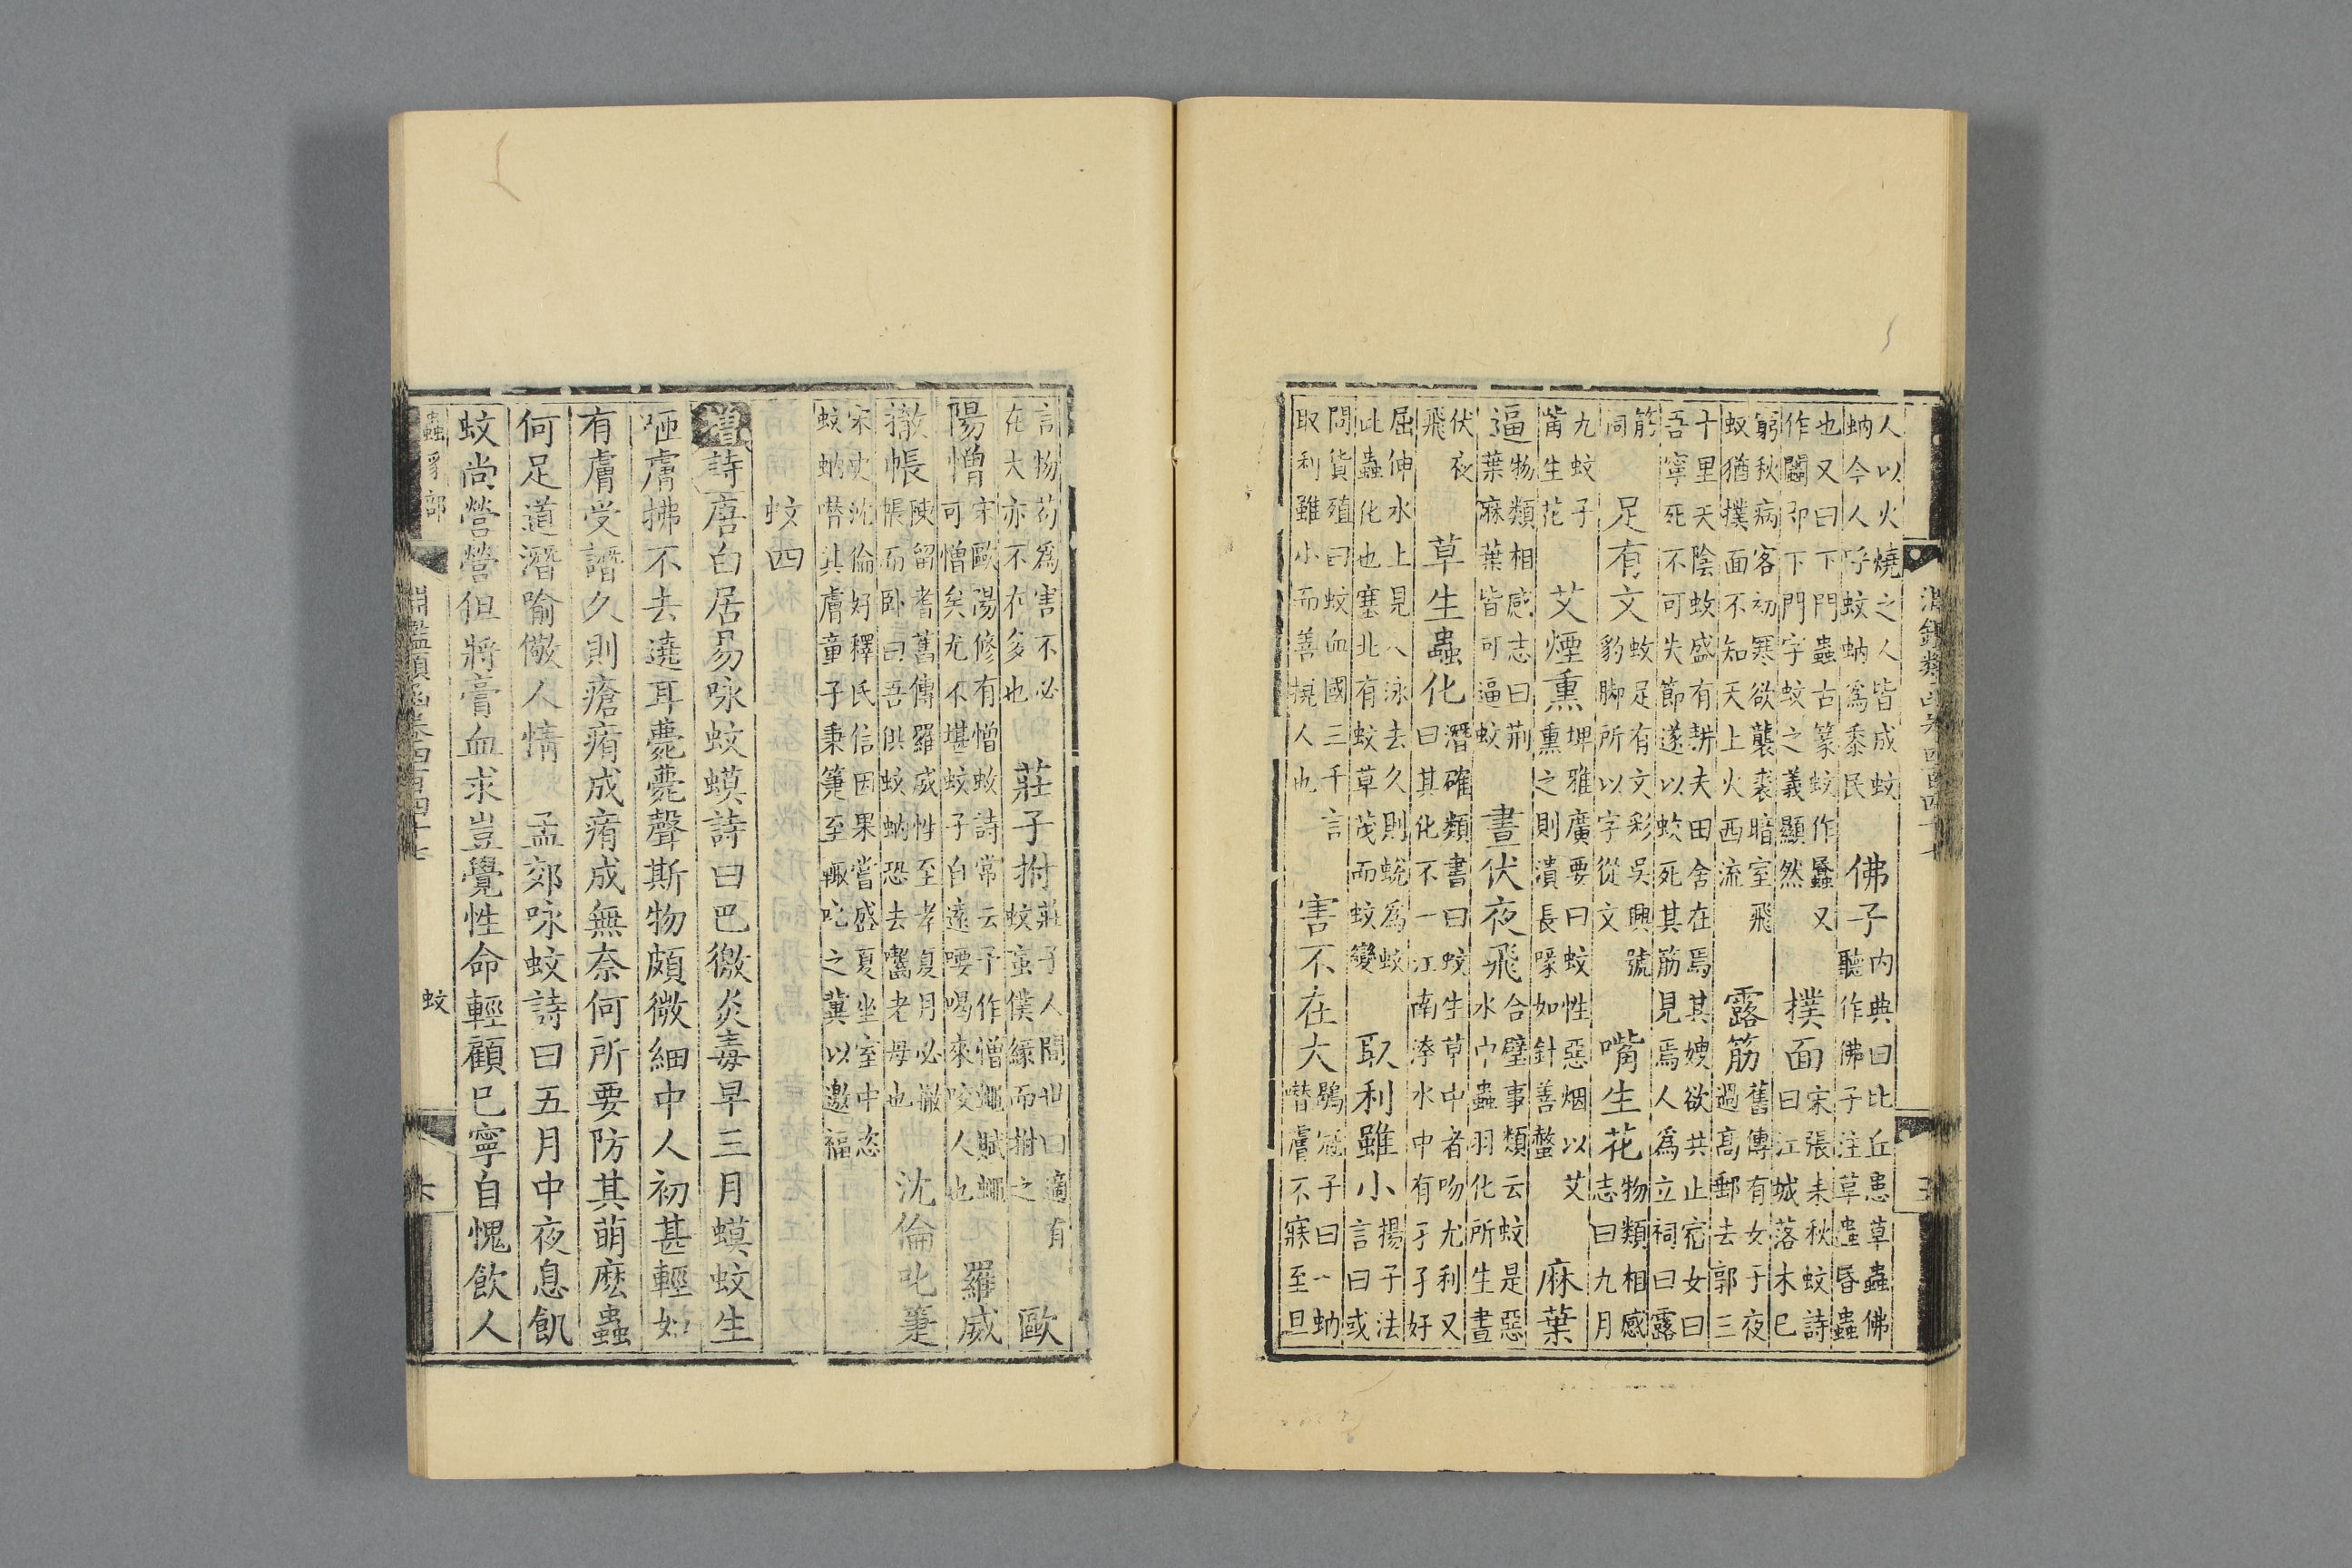 人以火燒之人皆成蚊
蚋今人呼蚊蚋為黍民
佛子
內典曰比丘患草蟲佛
聽作佛子注草蟲昏蟲
也又曰下門蟲古篆蚊作蟁又
作闣卽下門字蚊之義顯然
撲面
宋張耒秋蚊詩
曰江城落木已
窮秋病客初寒欲襲裘暗室飛
蚊猶撲面不知天上火西流
露筋
舊傳有女于夜
過高郵去郭三
十里天陰蚊盛有耕夫田舍在焉其嫂欲共止宿女曰
吾寧死不可失節遂以蚊死其筋見焉人爲立祠曰露
筋
祠
足有文
蚊足有文彩吳興號
豹脚所以字從文
嘴生花
物類相感
志曰九月
九蚊子
嘴生花
艾煙熏
埤雅廣要曰蚊性惡烟以艾
熏之則潰長喙如針善螫
麻葉
逼
物類相感志曰荊
葉麻葉皆可逼蚊
晝伏夜飛
合璧事類云蚊是惡
水中蟲羽化所生晝
伏夜
飛
草生蟲化
潛確類書曰蚊生草中者吻尤利又
曰其化不一江南滓水中有孑孑好
屈伸水上見人泳去久則蛻爲蚊
此蟲化也塞北有蚊草茂而蚊變
取利雖小
揚子法
言曰或
問貨殖曰蚊血國三千言
取利雖小而善撓人也
害不在大
鶡冠子曰一蚋
噆膚不寐至旦
言物苟爲害不必
在大亦不在多也
莊子拊
莊子人間世曰適有
蚊䖟僕緣而拊之
歐
陽憎
宋歐陽修有憎蚊詩常云予作憎蠅賦蠅
可憎矣尤不堪蚊子自遠嚶喝來咬人也
羅威
撤帳
陳留耆舊傳羅威性至孝夏月必撤
帳而卧曰吾供蚊蚋恐去嚙老母也
沈倫叱箑
宋史沈倫好釋氏信因果嘗盛夏坐室中恣
蚊蚋噆其膚童子秉箑至輒叱之冀以邀福
蚊四
增詩唐白居易咏蚊蟆詩曰巴徼炎毒早三月蟆蚊生
咂膚拂不去遶耳薨薨聲斯物頗微細中人初甚輕如
有膚受譖久則瘡痏成痏成無奈何所要防其萌麽蟲
何足道潛喻儆人情
孟郊咏蚊詩曰五月中夜息飢
蚊尚營營但將膏血求豈覺性命輕顧已寧自愧飲人
蟲豸部
淵鑑類函卷四百四十七
蚊